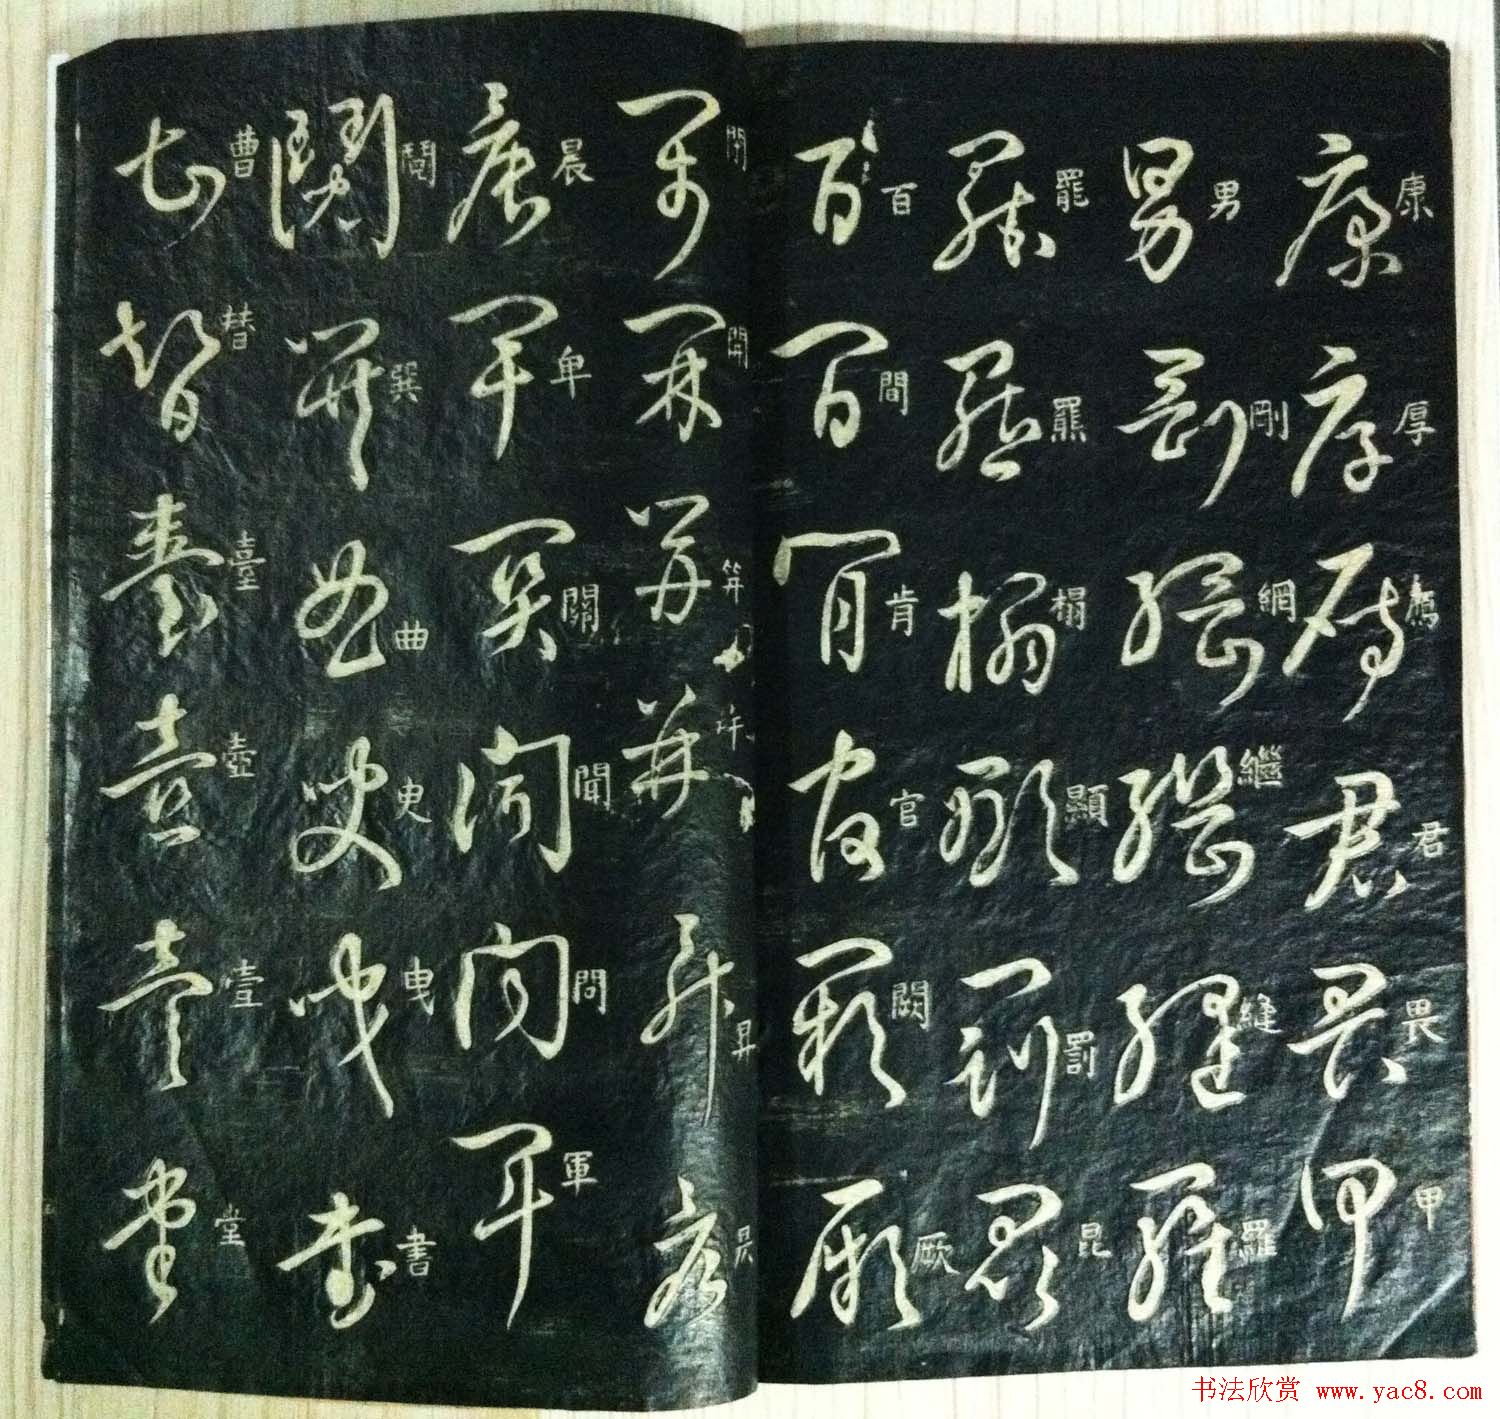 康厚鴈君畏甲
男剛網繼縫羅
罷羆榻顯罰昆
百間肯官闕厥
閉開笄昇炅
晨卑關聞問軍
鬪巽曲叟曳書
曹替臺壺壹堂
书法欣赏 www.yac8.com